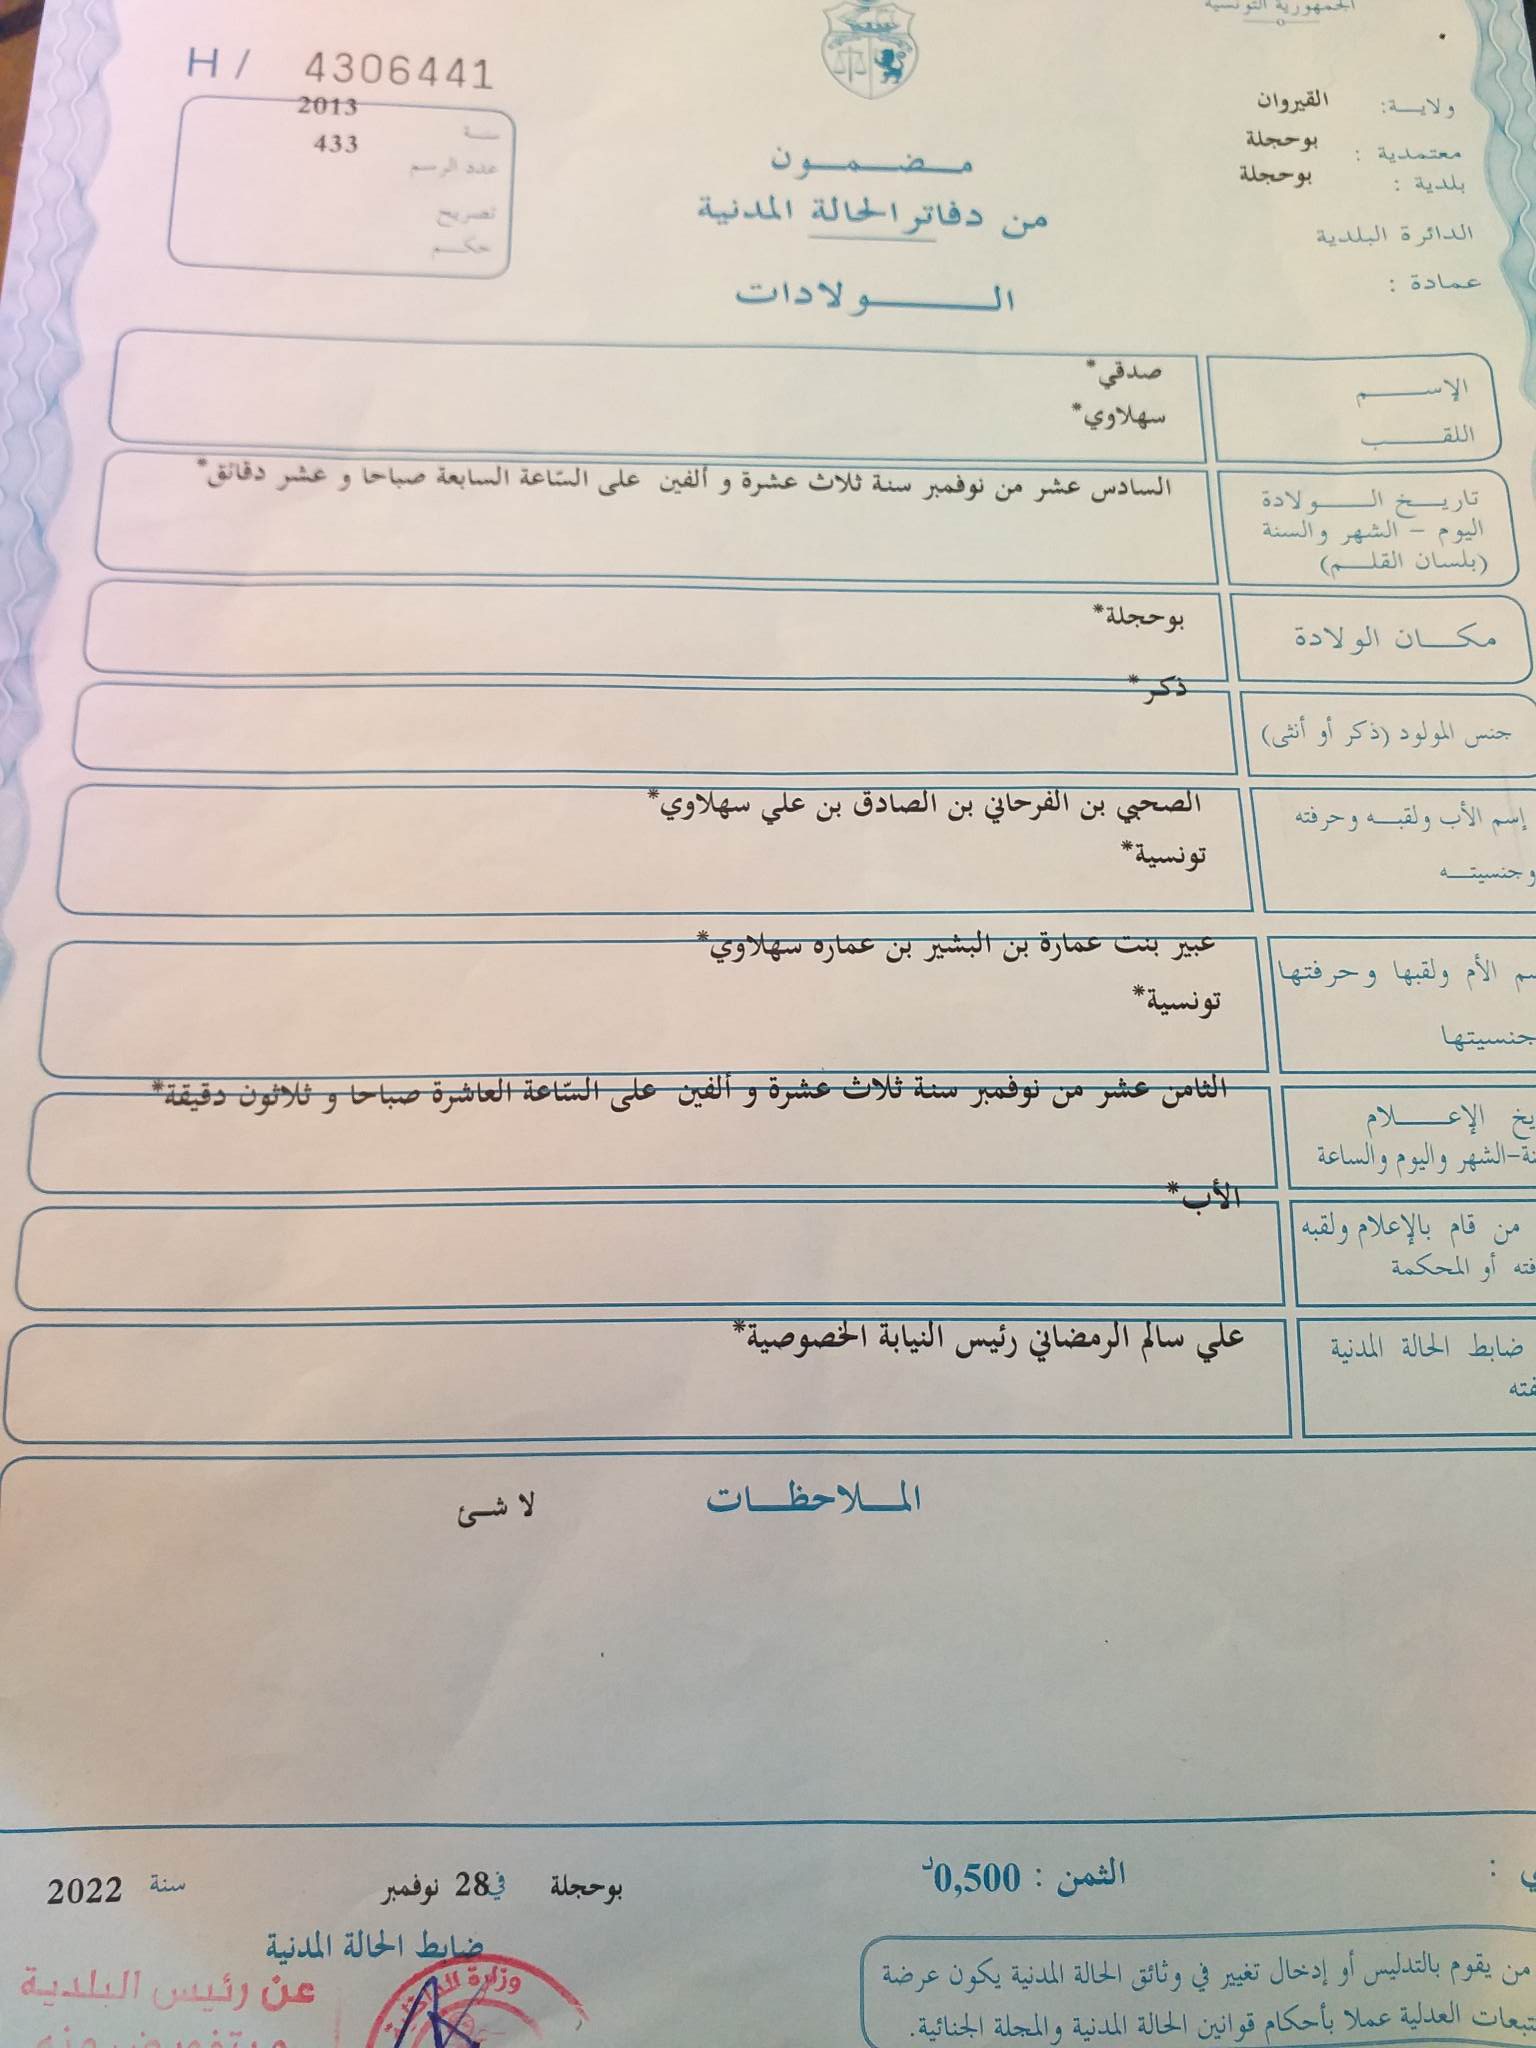 الجمهورية التونسية
H / 4306441
سنة 2013
عدد الرسم 433
تصريح
حكم
ولاية: القيروان
معتمدية : بوحجلة
بلدية : بوحجلة
الدائرة البلدية
عمادة :
مضمون
من دفاتر الحالة المدنية
الولادات
الإسم صدقي*
اللقب سهلاوي*
تاريخ الولادة
اليوم - الشهر والسنة
(بلسان القلم)
السادس عشر من نوفمبر سنة ثلاث عشرة و ألفين على السّاعة السابعة صباحا و عشر دقائق*
مكان الولادة بوحجلة*
جنس المولود (ذكر أو أنثى) ذكر*
إسم الأب ولقبه وحرفته
وجنسيته
الصحبي بن الفرحاني بن الصادق بن علي سهلاوي*
تونسية*
الأم ولقبها وحرفتها
جنسيتها
عبير بنت عمارة بن البشير بن عماره سهلاوي*
تونسية*
الإعلام
الشهر واليوم والساعة
الثامن عشر من نوفمبر سنة ثلاث عشرة و ألفين على السّاعة العاشرة صباحا و ثلاثون دقيقة*
من قام بالإعلام ولقبه
أو المحكمة
الأب*
ضابط الحالة المدنية
علي سالم الرمضاني رئيس النيابة الخصوصية*
الملاحظات
لا شئ
الثمن : 0,500د
بوحجلة في 28 نوفمبر سنة 2022
ضابط الحالة المدنية
عن رئيس البلدية
وزارة
من يقوم بالتدليس أو إدخال تغيير في وثائق الحالة المدنية يكون عرضة
العدلية عملا بأحكام قوانين الحالة المدنية والمجلة الجنائية.